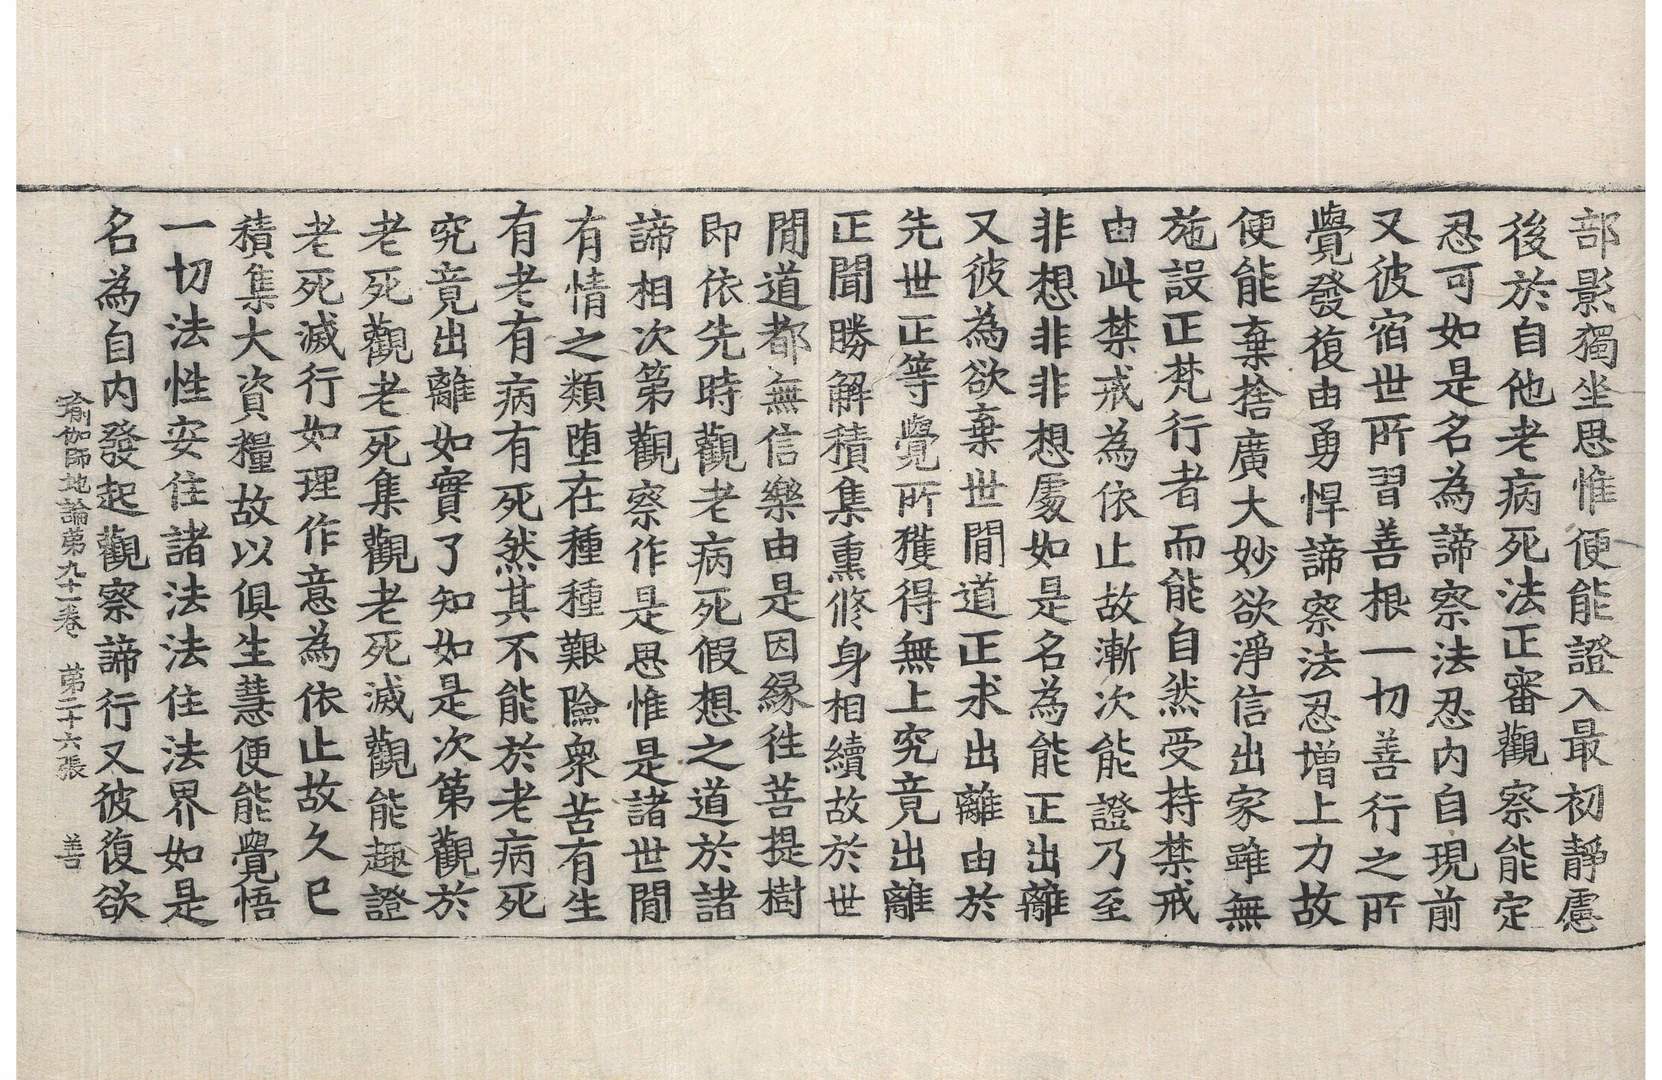 部影獨坐思惟便能證入最初靜慮
後於自他老病死法正審觀察能定
忍可如是名為諦察法忍內自現前
又彼宿世所習善根一切善行之所
覺發復由勇悍諦察法忍增上力故
便能棄捨廣大妙欲淨信出家雖無
施設正梵行者而能自然受持禁戒
由此禁戒為依止故漸次能證乃至
非想非非想處如是名為能正出離
又彼為欲棄世間道正求出離由於
先世正等覺所獲得無上究竟出離
正聞勝解積集熏修身相續故於世
間道都無信樂由是因緣往菩提樹
即依先時觀老病死假想之道於諸
諦相次第觀察作是思惟是諸世間
有情之類墮在種種艱險衆苦有生
有老有病有死然其不能於老病死
究竟出離如實了知如是次第觀於
老死觀老死集觀老死滅觀能趣證
老死滅行如理作意為依止故久已
積集大資糧故以俱生慧便能覺悟
一切法性安住諸法法住法界如是
名為自內發起觀察諦行又彼復欲
瑜伽師地論第九十一卷　第二十六張　善